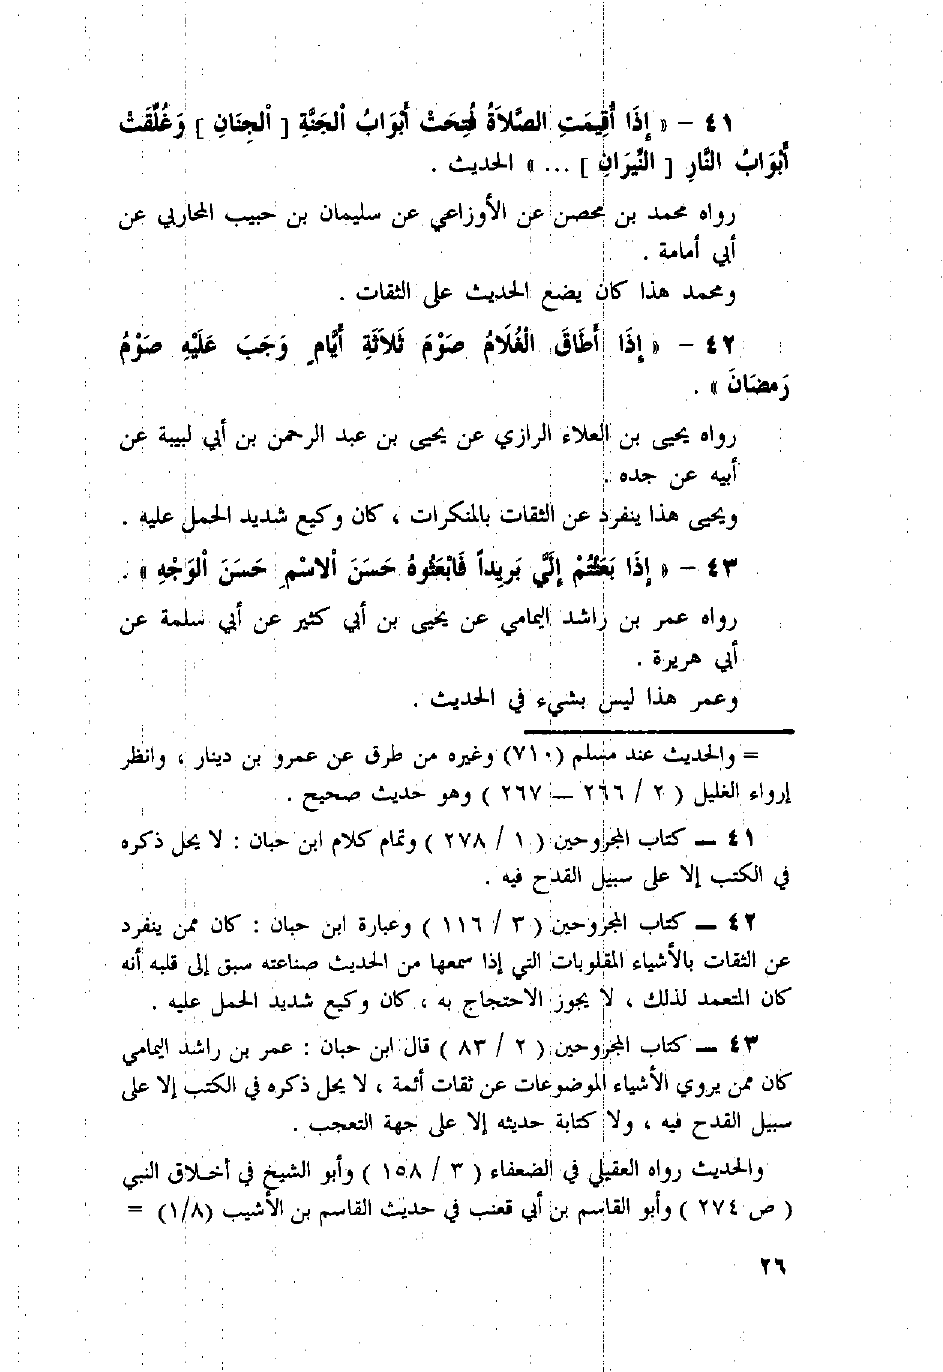 ٤١ – « إِذَا أُقِيمَتِ الصَّلاَةُ فُتِحَتْ أَبْوَابُ الْجَنَّةِ [ الْجِنَانِ ] وَغُلِّقَتْ
أَبْوَابُ النَّارِ [ النِّيرَانِ ] ... » الحديث .
رواه محمد بن محصن عن الأوزاعي عن سليمان بن حبيب المحاربي عن
أبي أمامة .
ومحمد هذا كان يضع الحديث على الثقات .
٤٢ – « إِذَا أَطَاقَ الْغُلَامُ صَوْمَ ثَلاَثَةِ أَيَّامٍ وَجَبَ عَلَيْهِ صَوْمُ
رَمضَانَ » .
رواه يحيى بن العلاء الرازي عن يحيى بن عبد الرحمن بن أبي لبيبة عن
أبيه عن جده .
ويحيى هذا ينفرد عن الثقات بالمنكرات ، كان وكيع شديد الحمل عليه .
٤٣ – « إِذَا بَعَثْتُمْ إِلَيَّ بَرِيداً فَابْعَثُوهُ حَسَنَ الاسْمِ حَسَنَ الْوَجْهِ » .
رواه عمر بن راشد اليمامي عن يحيى بن أبي كثير عن أبي سلمة عن
أبي هريرة .
وعمر هذا ليس بشيء في الحديث .
= والحديث عند مسلم (٧١٠) وغيره من طرق عن عمرو بن دينار ، وانظر
إرواء الغليل ( ٢ / ٢٦٦ – ٢٦٧ ) وهو حديث صحيح .
٤١ – كتاب المجروحين ( ١ / ٢٧٨ ) وتمام كلام ابن حبان : لا يحل ذكره
في الكتب إلا على سبيل القدح فيه .
٤٢ – كتاب المجروحين ( ٣ / ١١٦ ) وعبارة ابن حبان : كان ممن ينفرد
عن الثقات بالأشياء المقلوبات التي إذا سمعها من الحديث صناعته سبق إلى قلبه أنه
كان المتعمد لذلك ، لا يجوز الاحتجاج به ، كان وكيع شديد الحمل عليه .
٤٣ – كتاب المجروحين ( ٢ / ٨٣ ) قال ابن حبان : عمر بن راشد اليمامي
كان ممن يروي الأشياء الموضوعات عن ثقات أئمة ، لا يحل ذكره في الكتب إلا على
سبيل القدح فيه ، ولا كتابة حديثه إلا على جهة التعجب .
والحديث رواه العقيلي في الضعفاء ( ٣ / ١٥٨ ) وأبو الشيخ في أخلاق النبي
( ص ٢٧٤ ) وأبو القاسم بن أبي قعنب في حديث القاسم بن الأشيب (١/٨) =
٢٦